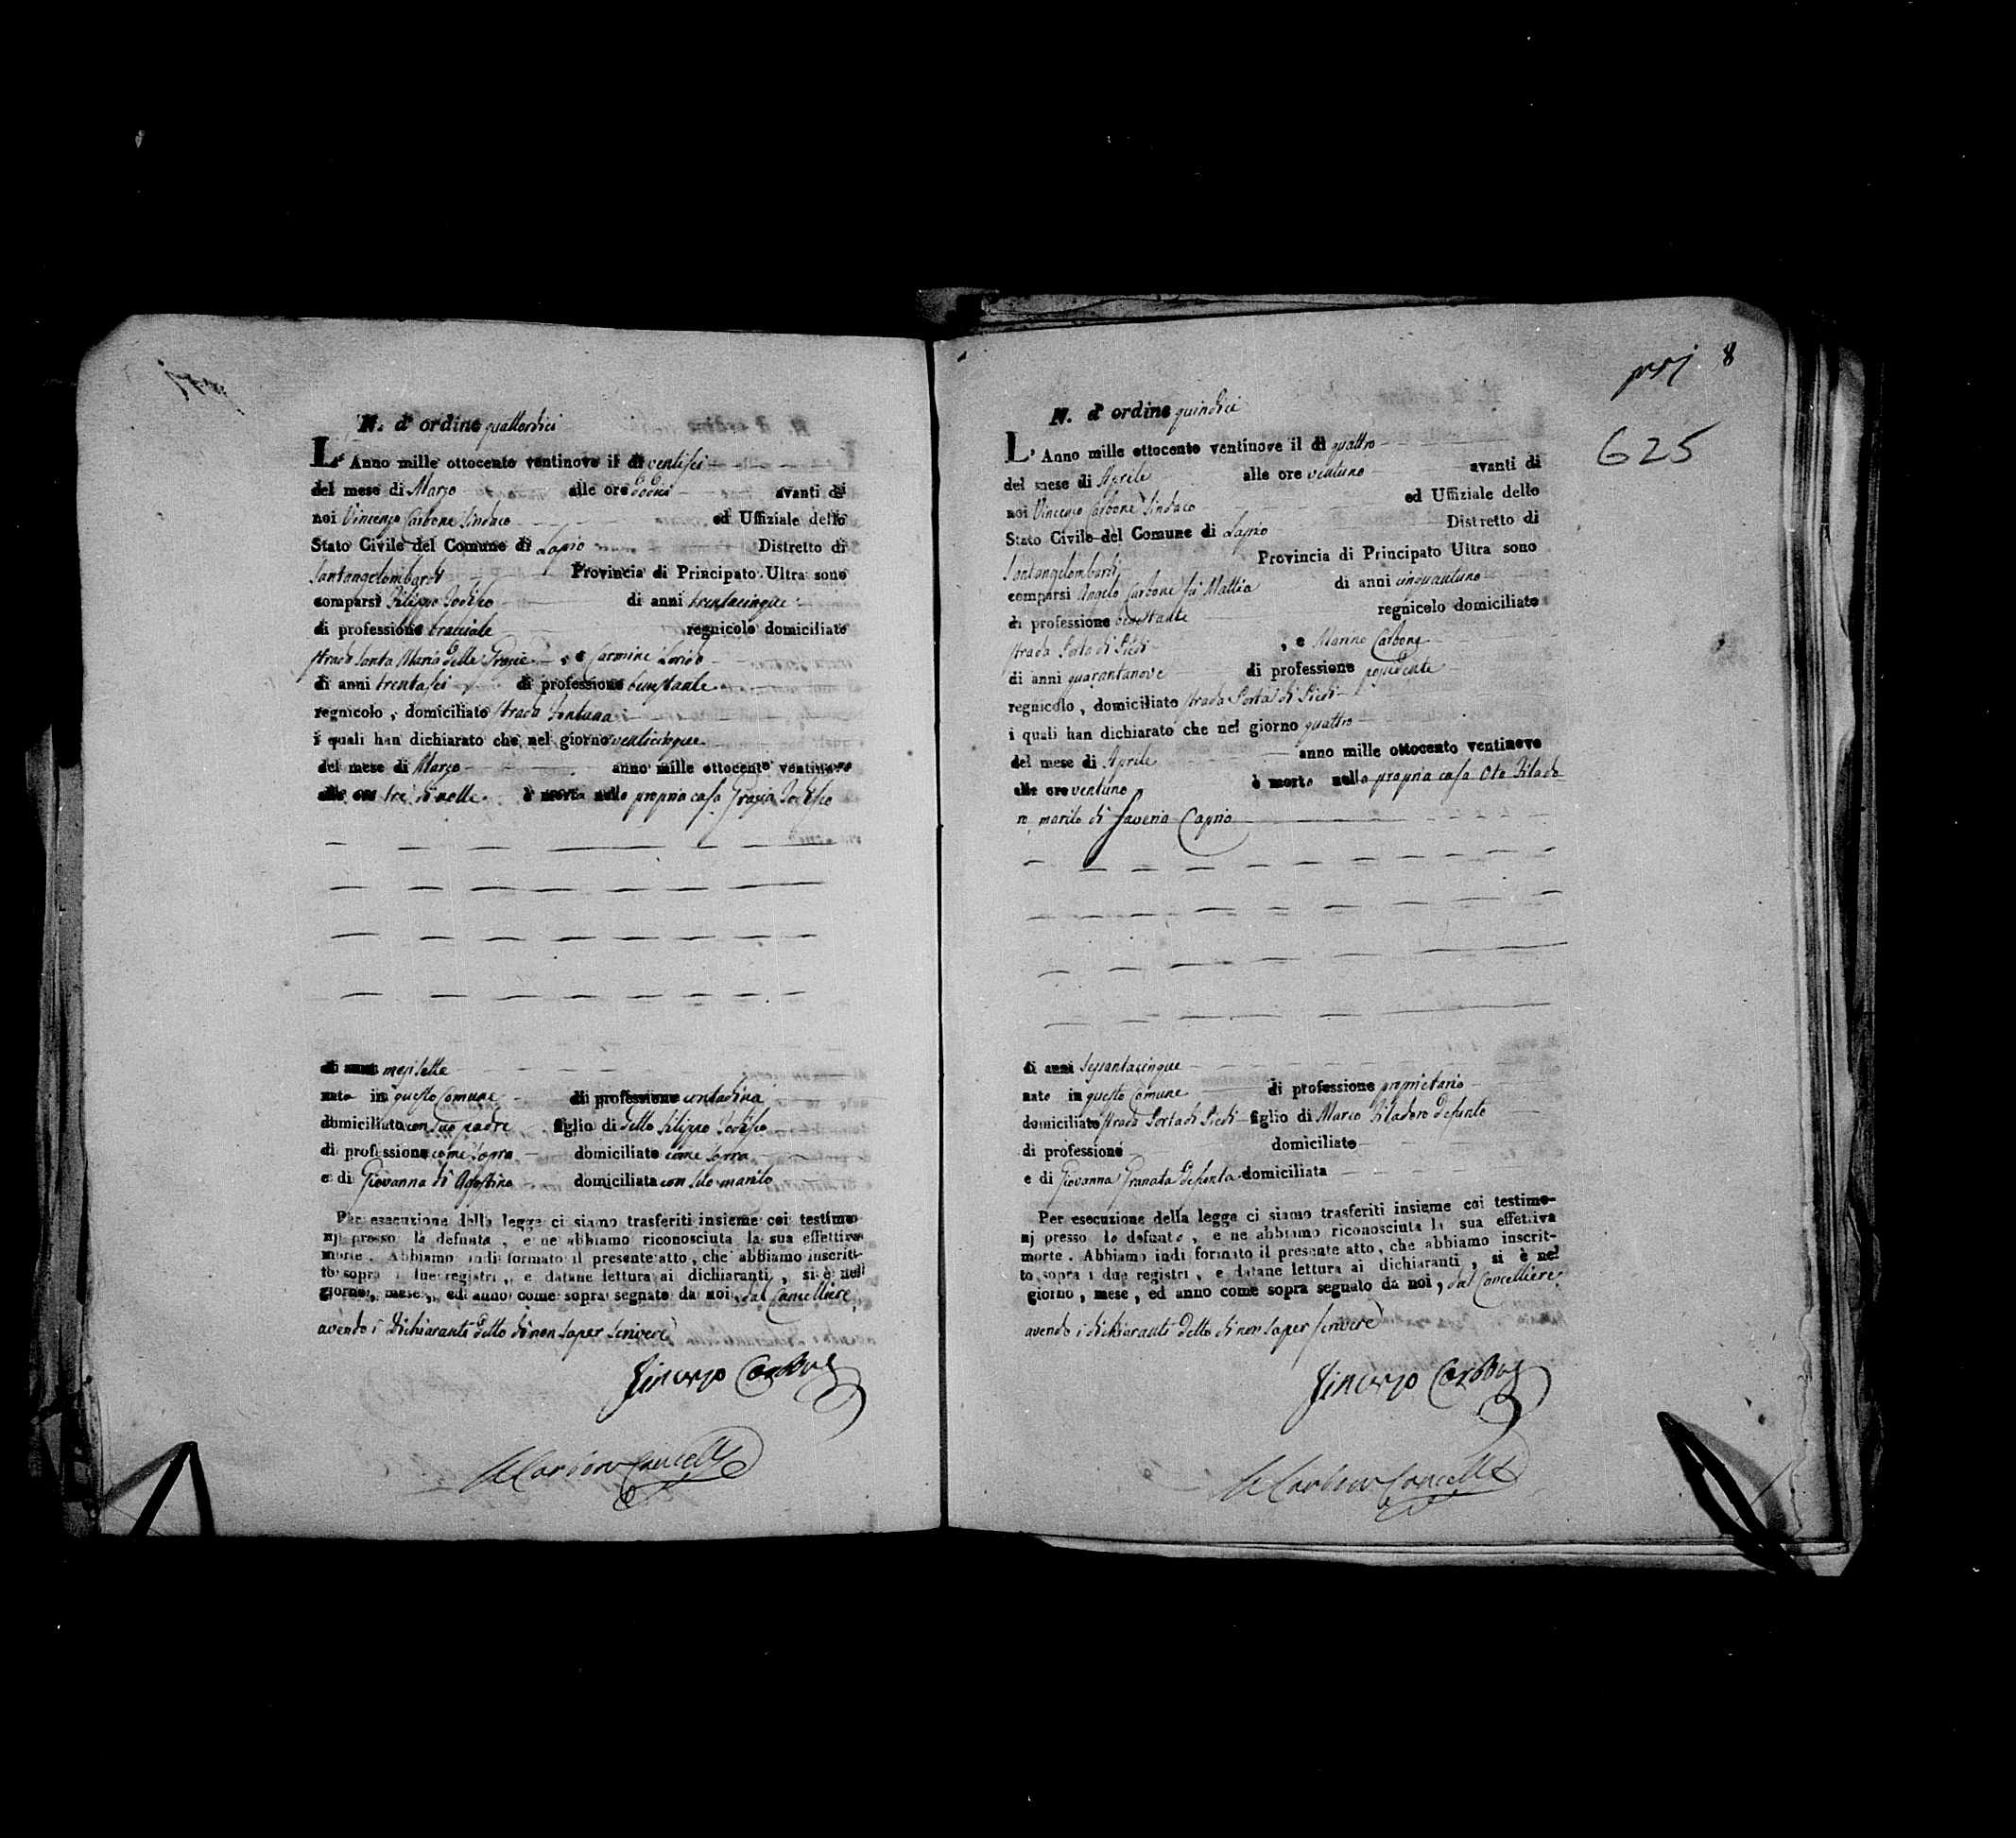 N. d' ordine quattordici
L' Anno mille ottocento ventinove il di ventisei
del mese di Marzo alle ore dodici avanti di
noi Vincenzo Carbone Sindaco ed Uffiziale dello
Stato Civile del Comune di Lapio Distretto di
Santangelombardi Provincia di Principato Ultra sono
comparsi Filippo di anni trentacinque
di professione bracciale regnicolo domiciliato
strada Santa Maria delle Grazie , e Carmine
di anni trentasei di professione benestante
regnicolo , domiciliato strada Fontana
i quali han dichiarato che nel giorno venticinque
del mese di Marzo anno mille ottocento ventinove
alle ore tre di notte è morta nella propria casa Grazia
di anni mesi sette
nata in questo Comune di professione contadina
domiciliata con suo padre figlio di detto Filippo
di professione come sopra domiciliato come sopra
e di Giovanna di Agostino domiciliata con suo marito
Per esecuzione della legge ci siamo trasferiti insieme coi testimo-
nj presso la defunta , e ne abbiamo riconosciuta la sua effettiva
morte . Abbiamo indi formato il presente atto , che abbiamo inscrit-
to sopra i due registri , e datane lettura ai dichiaranti , si è nel
giorno , mese , ed anno come sopra segnato da noi , dal Cancelliere
avendo i dichiaranti detto di non saper scrivere
Vincenzo Carbone
Carbone Cancell
prj 8
625
N. d' ordine quindici
L' Anno mille ottocento ventinove il di quattro
del mese di Aprile alle ore ventuno avanti di
noi Vincenzo Carbone Sindaco ed Uffiziale dello
Stato Civile del Comune di Lapio Distretto di
Santangelombardi Provincia di Principato Ultra sono
comparsi Angelo Carbone fu Mattia di anni cinquantuno
di professione benestante regnicolo domiciliato
strada Porta di Piedi , e Marino Carbone
di anni quarantanove di professione possidente
regnicolo , domiciliato strada Porta di Piedi
i quali han dichiarato che nel giorno quattro
del mese di Aprile anno mille ottocento ventinove
alle ore ventuno è morto nella propria casa Oto Filado
ro marito di Saveria Caprio
di anni sessantacinque
nato in questo Comune di professione proprietario
domiciliato strada Porta di Piedi figlio di Marco Filadoro defunto
di professione domiciliato
e di Giovanna Granata defunta domiciliata
Per esecuzione della legge ci siamo trasferiti insieme coi testimo-
nj presso lo defunto , e ne abbiamo riconosciuta la sua effettiva
morte . Abbiamo indi formato il presente atto , che abbiamo inscrit-
to sopra i due registri , e datane lettura ai dichiaranti , si è nel
giorno , mese , ed anno come sopra segnato da noi , dal Cancelliere
avendo i dichiaranti detto di non saper scrivere
Vincenzo Carbone
Carbone Cancell